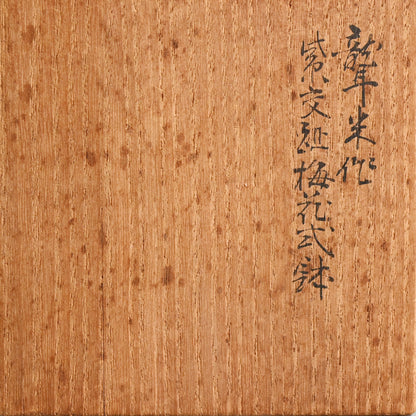 聾米作
紫交趾梅花式鉢